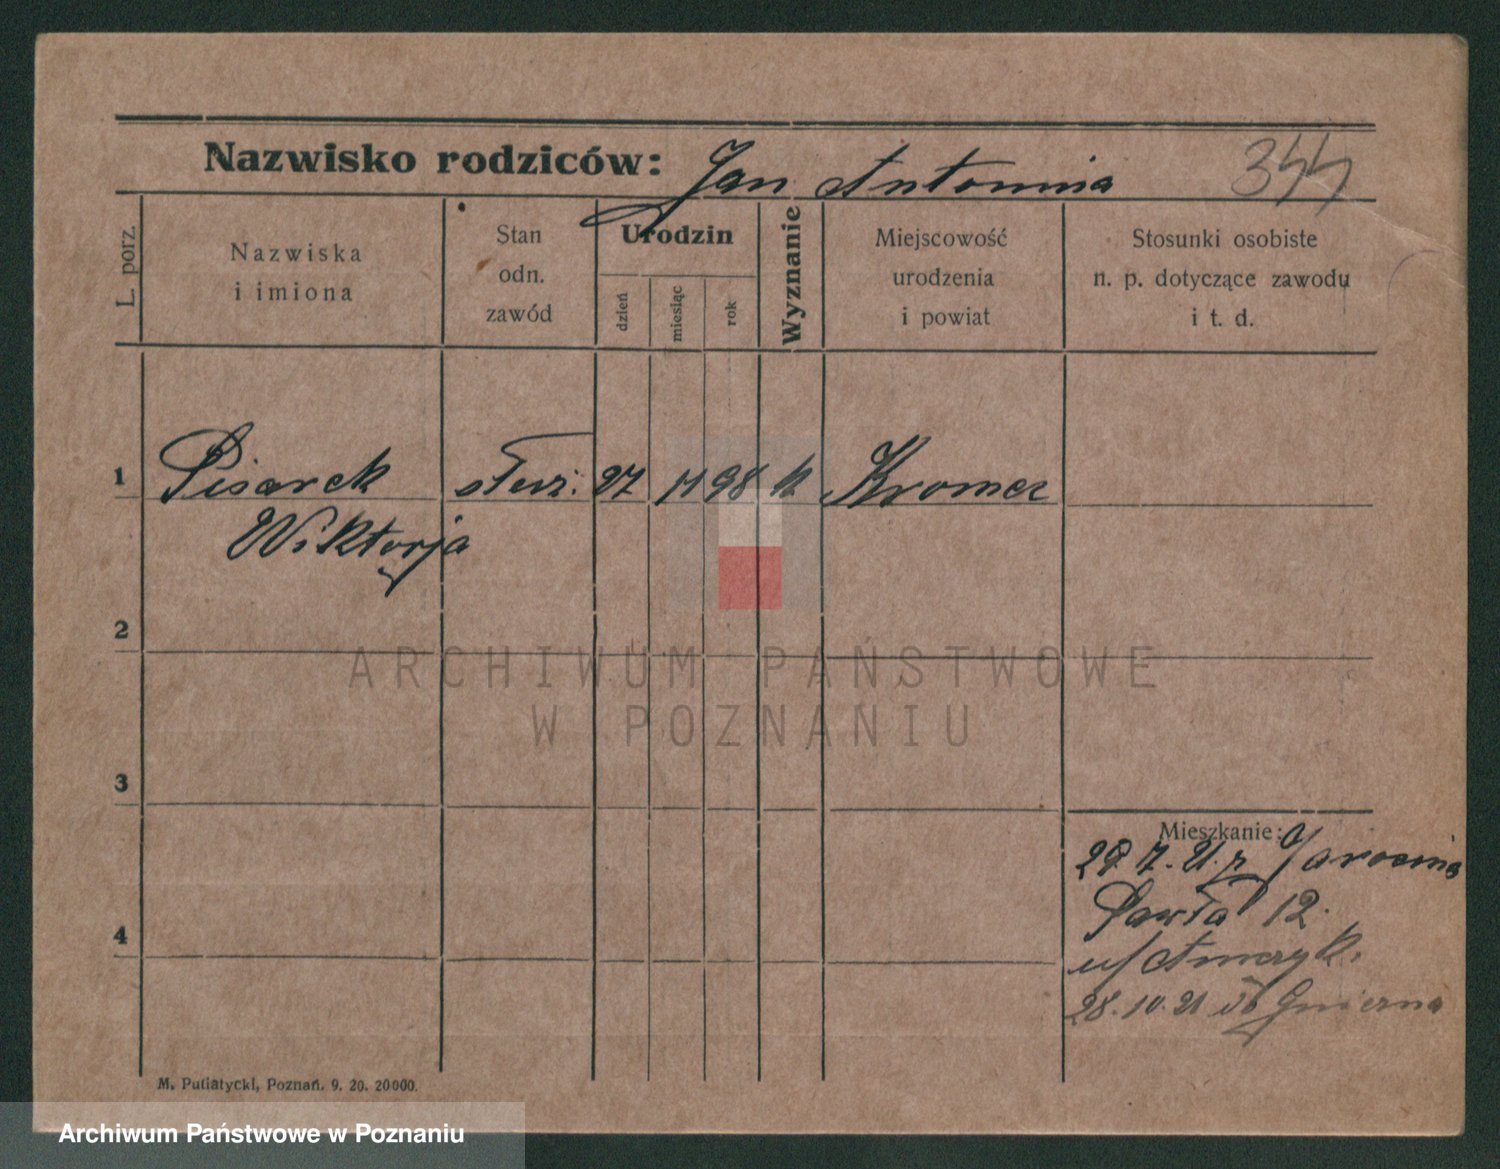 Nazwisko rodziców: Jan Antonina 344
L. porz.
Nazwiska
i imiona
Stan
odn.
zawód
Urodzin
dzień
miesiąc
rok
Wyznanie
Miejscowość
urodzenia
i powiat
Stosunki osobiste
n. p. dotyczące zawodu
i t. d.
1 Pisarek służ. 27 11 98 k Kromer
Wiktorja
2
3
4
Mieszkanie:
29.7.21. z Jarocina
Pawła 12.
28.10.21 do Gniezna
M. Putiatycki, Poznań. 9. 20. 20000.
ARCHIWUM PAŃSTWOWE
W POZNANIU
Archiwum Państwowe w Poznaniu